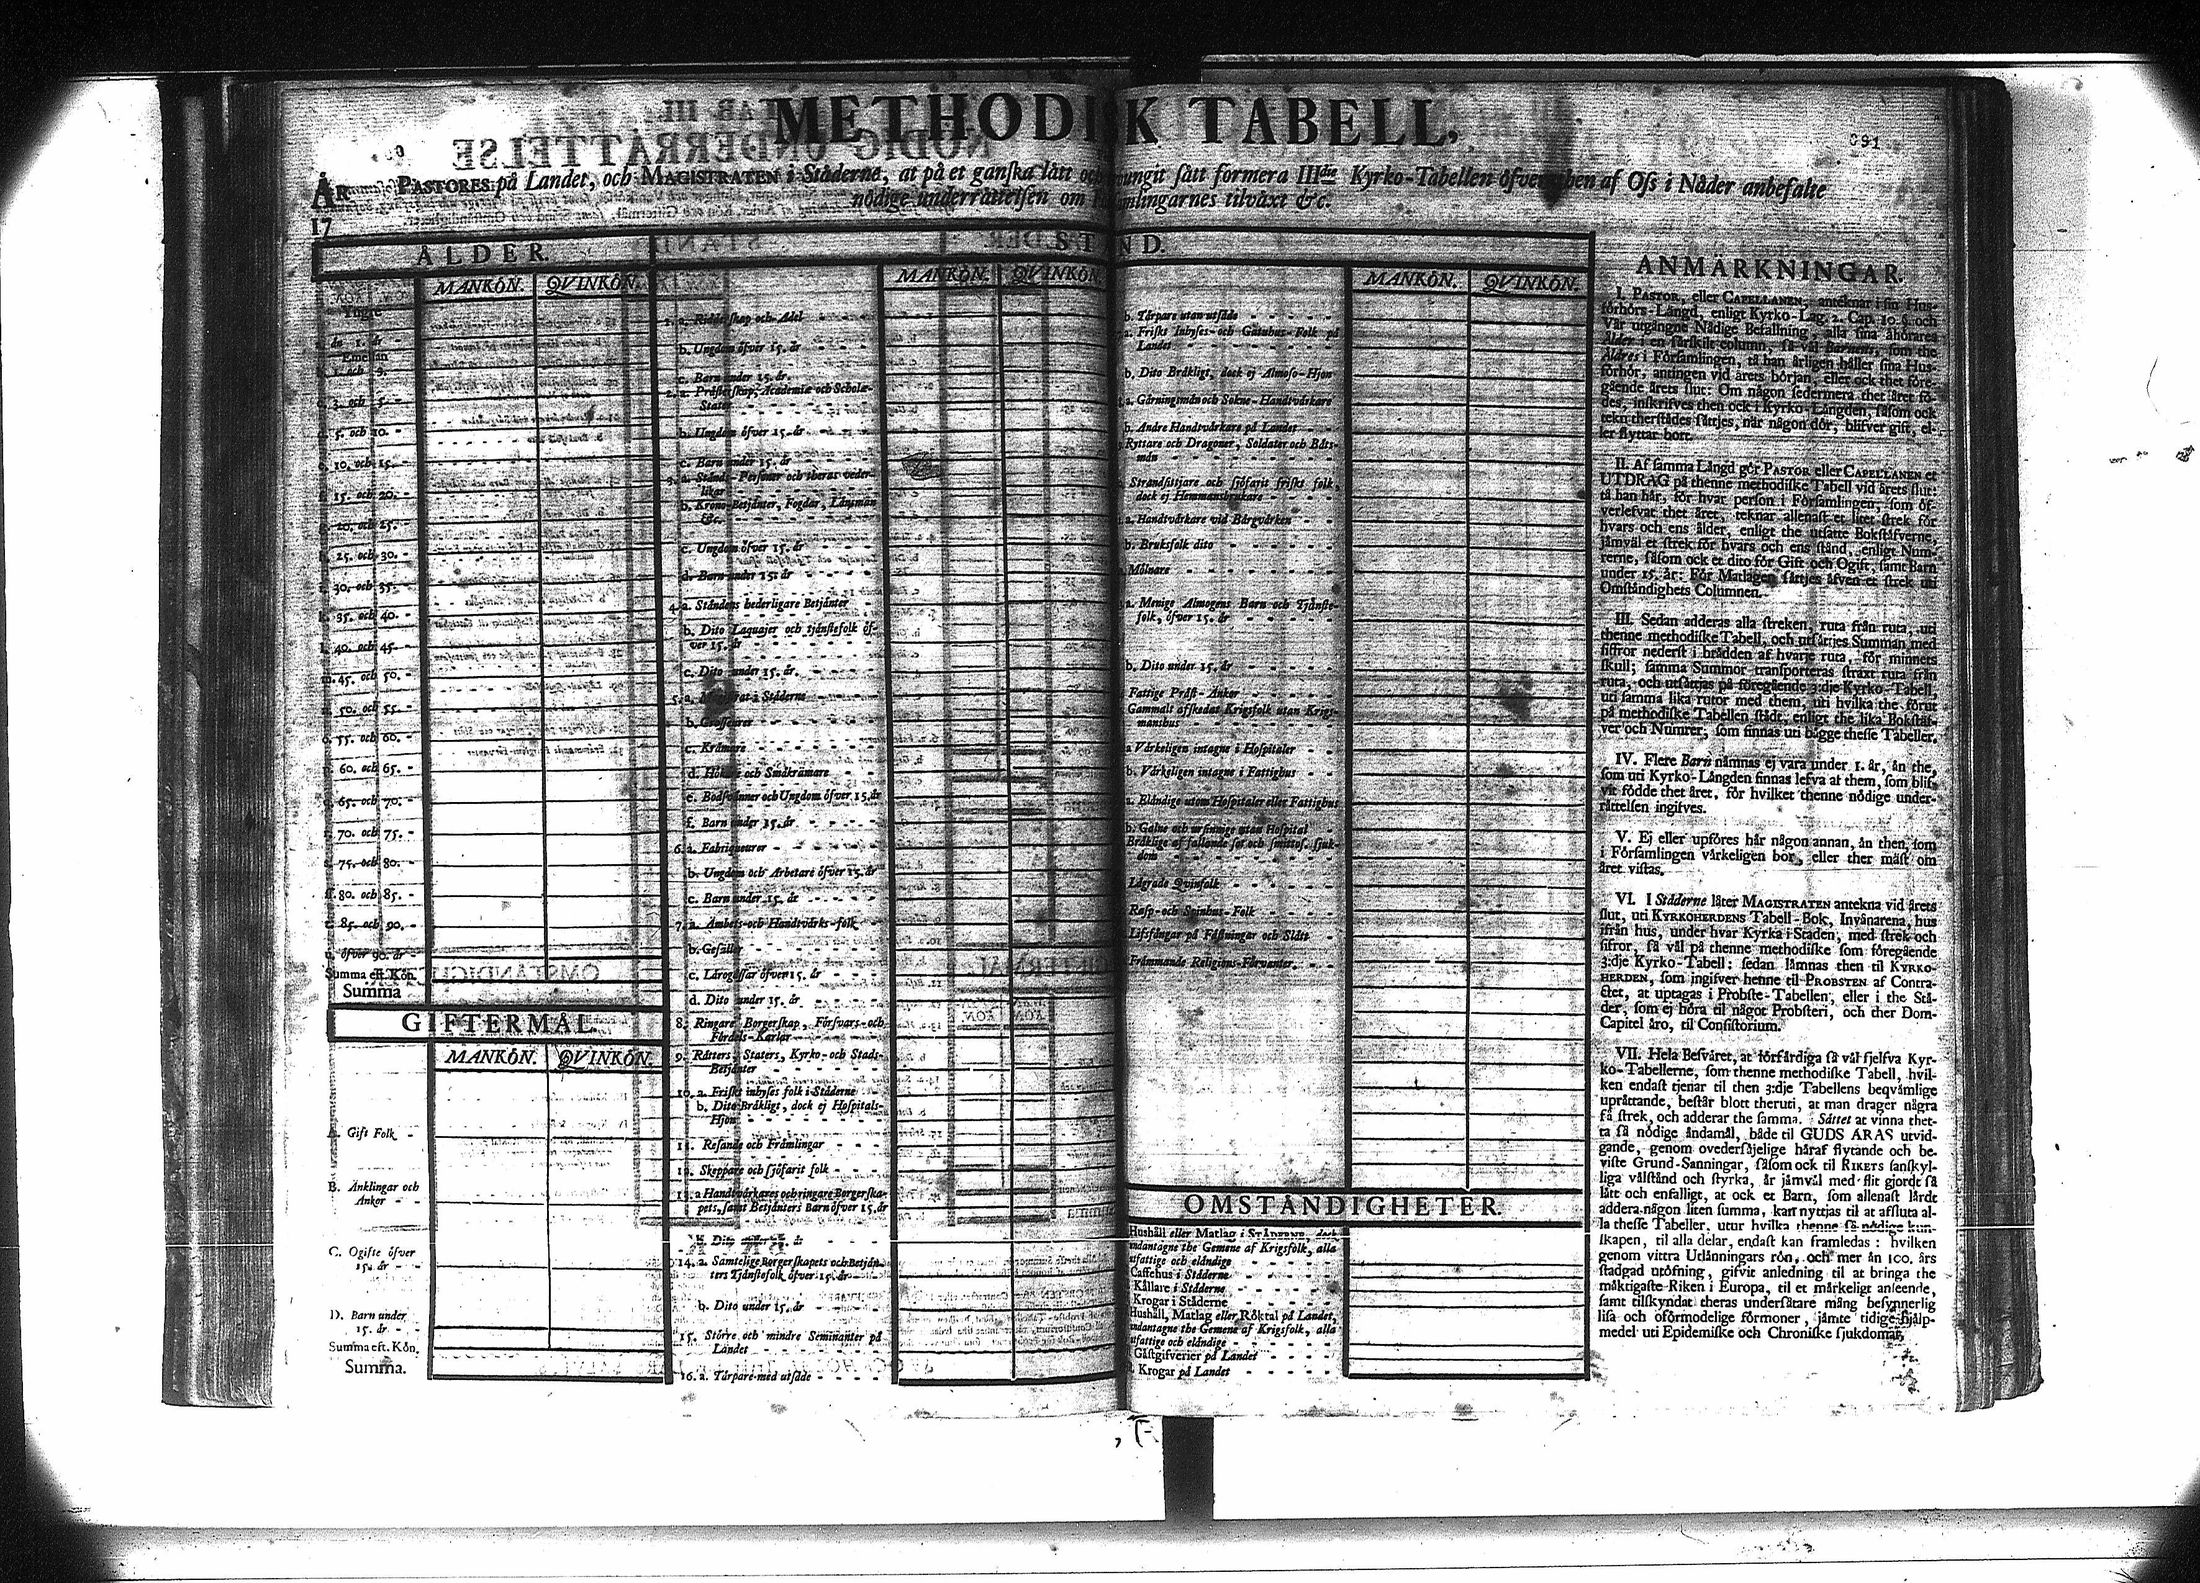 METHODISK TABELL,
891
PASTORES på Landet, och MAGISTRATEN i Städerne, at på et ganska lätt och tvungit sätt formera IIIdie Kyrko-Tabellen öfver then af Oss i Nåder anbefalte
nödige underrättelsen om Församlingarnes tilväxt &c.
ÅR
17
ÅLDER.
MANKÖN. QVINKÖN.
Yngre
än 1. år
Emellan
1. och 3.
3. och 5. -
5. och 10. -
10. och 15. -
15. och 20. -
20. och 25. -
25. och 30. -
30. och 35. -
35. och 40. -
40. och 45. -
m. 45. och 50. -
50. och 55. -
55. och 60. -
60. och 65. -
65. och 70. -
70. och 75. -
75. och 80. -
80. och 85. -
85. och 90. -
öfver 90. år -
Summa eft. Kön.
Summa
GIFTERMÅL.
MANKÖN. QVINKÖN.
A. Gift Folk -
B. Änklingar och
Änkor - -
C. Ogifte öfver
15. år - -
D. Barn under
15. år - -
Summa eft. Kön.
Summa.
STÅND.
MANKÖN. QVINKÖN.
1. a. Ridderskap och Adel
b. Ungdom öfver 15. år
c. Barn under 15. år
2. a. Prästerskap, Academiæ och Scholæ-
Stater
b. Ungdom öfver 15. år
c. Barn under 15. år
3. a. Stånds-Personer och theras veder-
likar
b. Krono-Betjänter, Fogdar, Länsmän
&c.
c. Ungdom öfver 15. år
d. Barn under 15. år
4. a. Ståndens hederligare Betjänter
b. Dito Laquajer och tjänstefolk öf-
ver 15. år
c. Dito under 15. år
5. a. Magistrat i Städerne
b. Grosseurer
c. Krämare
d. Hökare och Småkrämare
e. Bodsvänner och Ungdom öfver 15. år
f. Barn under 15. år
6. a. Fabriqueurer
b. Ungdom och Arbetare öfver 15. år
c. Barn under 15. år
7. a. Ämbets- och Handtvärks-folk
b. Gesäller
c. Lärogossar öfver 15. år
d. Dito under 15. år
8. Ringare Borgerskap, Försvars- och
Fördels-Karlar
9. Rätters, Staters, Kyrko- och Stads-
Betjänter
10. a. Friskt inhyses folk i Städerne
b. Dito Bräkligt, dock ej Hospitals-
Hjon
11. Resande och Främlingar
12. Skeppare och sjöfarit folk
13. a Handtvärkares och ringare Borgerska-
pets, samt Betjänters Barn öfver 15. år
b. Dito under 15. år
14. a. Samtelige Borgerskapets och Betjän-
ters Tjänstefolk öfver 15. år
b. Dito under 15. år
15. Större och mindre Seminanter på
Landet
16. a. Tårpare med utsäde
MANKÖN. QVINKÖN.
b. Tårpare utan utsäde
a. Friskt Inhyses- och Gatuhus-Folk på
Landet
b. Dito Bräkligt, dock ej Almoso-Hjon
a. Gärningsmän och Sokne-Handtvärkare
b. Andre Handtvärkare på Landet
Ryttare och Dragoner, Soldater och Båts-
män
Strandsittjare och sjöfarit friskt folk,
dock ej Hemmansbrukare
a. Handtvärkare vid Bärgvärken
b. Bruksfolk dito
Mölnare
a. Menige Almogens Barn och Tjänste-
folk, öfver 15. år
b. Dito under 15. år
Fattige Präst-Änkor
Gammalt afskedat Krigsfolk utan Krigs-
manshus
a Värkeligen intagne i Hospitaler
b. Värkeligen intagne i Fattighus
a. Eländige utom Hospitaler eller Fattighus
b. Galne och ursinnige utan Hospital
Bräklige af fallande sot och smittos. sjuk-
dom
Lägrade Qvinfolk
Rasp- och Spinhus-Folk
Lifsfångar på Fästningar och Slått
Främmande Religions-Förvanter.
OMSTÄNDIGHETER.
Hushåll eller Matlag i STÄDERNE, dock
undantagne the Gemene af Krigsfolk, alla
utfattige och eländige
Caffehus i Städerne
Källare i Städerne
Krogar i Städerne
Hushåll, Matlag eller Röktal på Landet,
undantagne the Gemene af Krigsfolk, alla
utfattige och eländige
Gästgifverier på Landet
Krogar på Landet
ANMÄRKNINGAR.
I. PASTOR, eller CAPELLANEN, antéknar i sin Hus-
förhörs-Längd, enligt Kyrko-Lag. 2. Cap. 10. §. och
Vår utgångne Nådige Befallning, alla sina åhörares
Ålder i en särskilt column, så väl Barnens, som the
Äldres i Församlingen, tå han årligen håller sina Hus-
förhör, antingen vid årets början, eller ock thet före-
gående årets slut: Om någon sedermera thet året fö-
des, inskrifves then ock i Kyrko-Längden, såsom ock
tekn therstädes sättjes, när någon dör, blifver gift, el-
ler flyttar bort.
II. Af samma Längd gör PASTOR eller CAPELLANEN et
UTDRAG på thenne methodiske Tabell vid årets slut:
tå han här, för hvar person i Församlingen, som öf-
verlefvat thet året, teknar allenast et litet strek för
hvars och ens ålder, enligt the utsatte Bokstäfverne,
jämväl et strek för hvars och ens stånd, enligt Num-
rerne, såsom ock et dito för Gift och Ogift, samt Barn
under 15. år: För Matlagen sättjes äfven et strek uti
Omständighets Columnen.
III. Sedan adderas alla streken, ruta från ruta, uti
thenne methodiske Tabell, och utsättjes Summan med
siffror nederst i brädden af hvarje ruta, för minnets
skull; samma Summor transporteras straxt ruta från
ruta, och utsättjas på föregående 3:dje Kyrko-Tabell,
uti samma lika rutor med them, uti hvilka the förut
på methodiske Tabellen städt, enligt the lika Bokstäf-
ver och Numrer, som finnas uti bägge thesse Tabeller.
IV. Flere Barn nämnas ej vara under 1. år, än the,
som uti Kyrko-Längden finnas lefva af them, som blif-
vit födde thet året, för hvilket thenne nödige under-
rättelsen ingifves.
V. Ej eller upföres här någon annan, än then, som
i Församlingen värkeligen bor, eller ther mäst om
året vistas.
VI. I Städerne låter MAGISTRATEN antekna vid årets
slut, uti KYRKOHERDENS Tabell-Bok, Invånarena, hus
ifrån hus, under hvar Kyrka i Staden, med strek och
sifror, så väl på thenne methodiske som föregående
3:dje Kyrko-Tabell: sedan lämnas then til KYRKO-
HERDEN, som ingifver henne til PROBSTEN af Contra-
ctet, at uptagas i Probste-Tabellen, eller i the Stä-
der, som ej höra til något Probsteri, och ther Dom-
Capitel äro, til Consistorium.
VII. Hela Besväret, at förfärdiga så väl sjelfva Kyr-
ko-Tabellerne, som thenne methodiske Tabell, hvil-
ken endast tjenar til then 3:dje Tabellens beqvämlige
uprättande, består blott theruti, at man drager några
få strek, och adderar the samma. Sättet at vinna thet-
ta så nödige ändamål, både til GUDS ÄRAS utvid-
gande, genom ovedersäjelige häraf flytande och be-
viste Grund-Sanningar, såsom ock til RIKETS sanskyl-
liga välstånd och styrka, är jämväl med flit gjordt så
lätt och enfalligt, at ock et Barn, som allenast lärdt
addera någon liten summa, kan nyttjas til at afsluta al-
la thesse Tabeller, utur hvilka thenne så nödige kun-
skapen, til alla delar, endast kan framledas: hvilken
genom vittra Utlänningars rön, och mer än 100. års
stadgad utöfning, gifvit anledning til at bringa the
mäktigaste Riken i Europa, til et märkeligt anseende,
samt tilskyndat theras undersåtare mång besynnerlig
lisa och oförmodelige förmoner, jämte tidige hjälp-
medel uti Epidemiske och Chroniske sjukdomar,